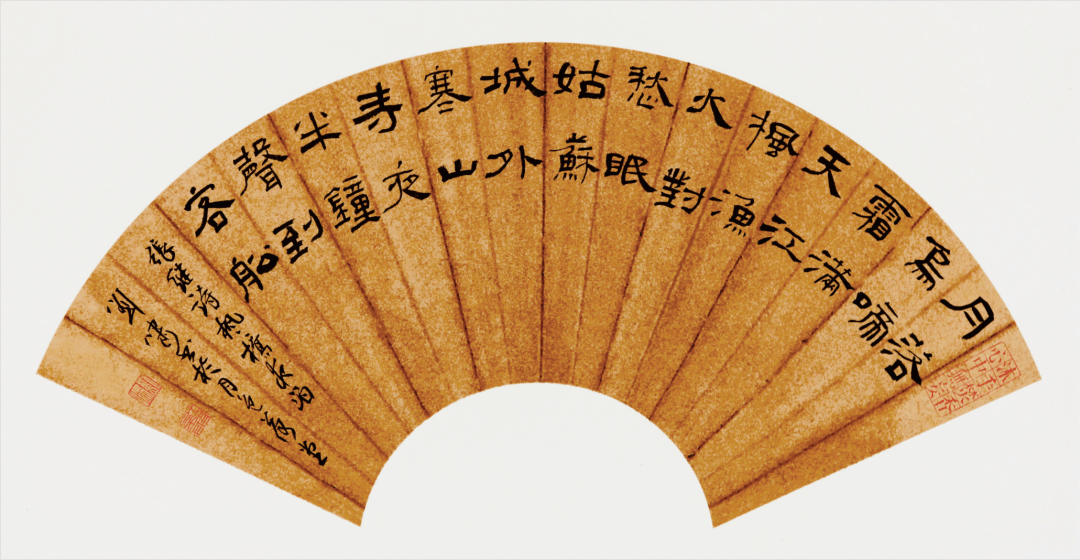 月落
烏啼
霜滿
天江
楓漁
火對
愁眠
姑蘇
城外
寒山
寺夜
半鐘
聲到
客船
張継詩楓橋夜泊
劉 書於月色 堂